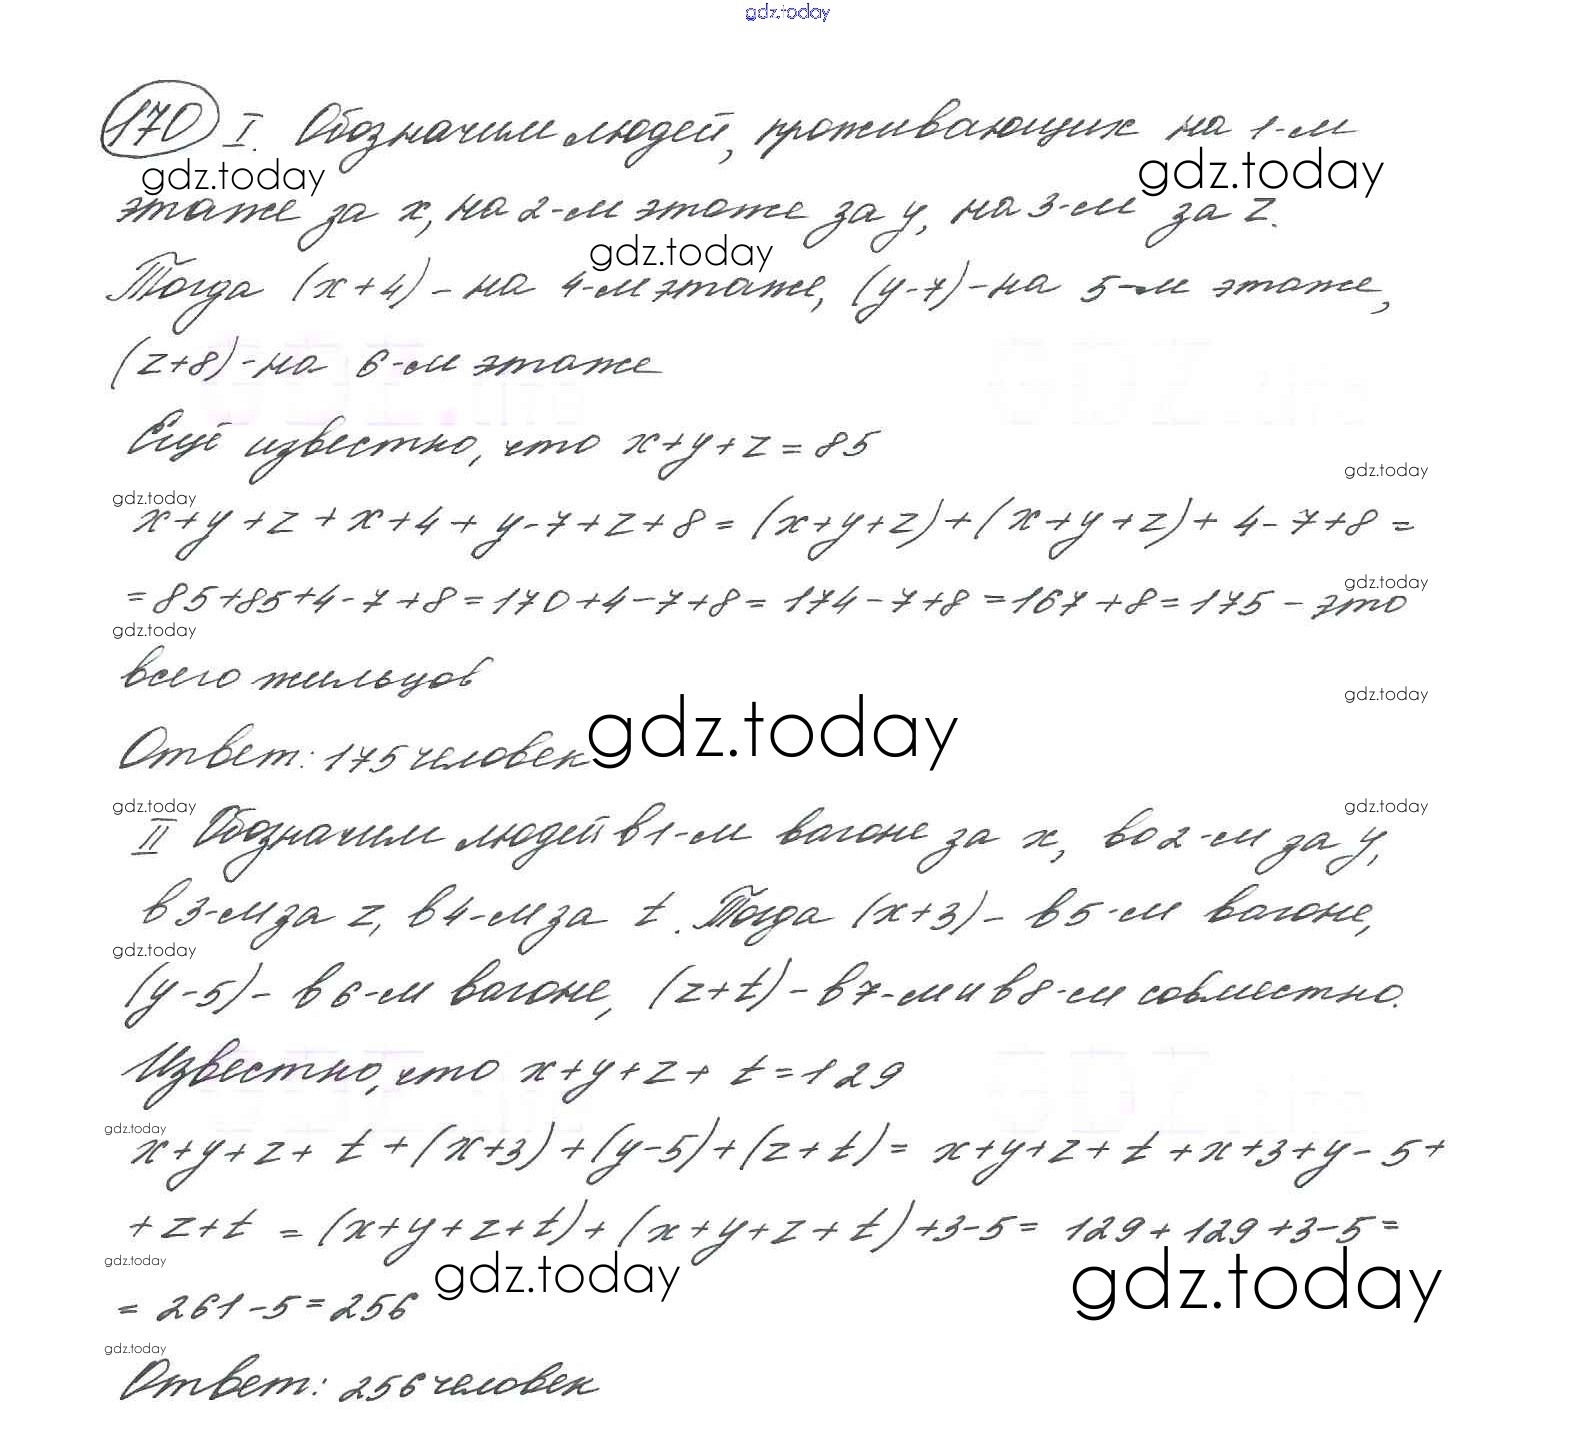 gdz.today
170 I. Обозначим людей, проживающих на 1-м
gdz.today gdz.today
этаже за x, на 2-м этаже за y, на 3-м за z.
gdz.today
Тогда (x+4) - на 4-м этаже, (y-7) - на 5-м этаже,
(z+8) - на 6-м этаже
Ещё известно, что x+y+z=85
gdz.today
gdz.today
x+y+z+x+4+y-7+z+8=(x+y+z)+(x+y+z)+4-7+8=
gdz.today
=85+85+4-7+8=170+4-7+8=174-7+8=167+8=175 - это
gdz.today
всего жильцов
gdz.today
gdz.today
Ответ: 175 человек
gdz.today gdz.today
II Обозначим людей в 1-м вагоне за x, во 2-м за y,
в 3-м за z, в 4-м за t. Тогда (x+3) - в 5-м вагоне,
gdz.today
(y-5) - в 6-м вагоне, (z+t) - в 7-м и в 8-м совместно.
Известно, что x+y+z+t=129
gdz.today
x+y+z+t+(x+3)+(y-5)+(z+t)=x+y+z+t+x+3+y-5+
+z+t=(x+y+z+t)+(x+y+z+t)+3-5=129+129+3-5=
gdz.today gdz.today gdz.today
=261-5=256
gdz.today
Ответ: 256 человек